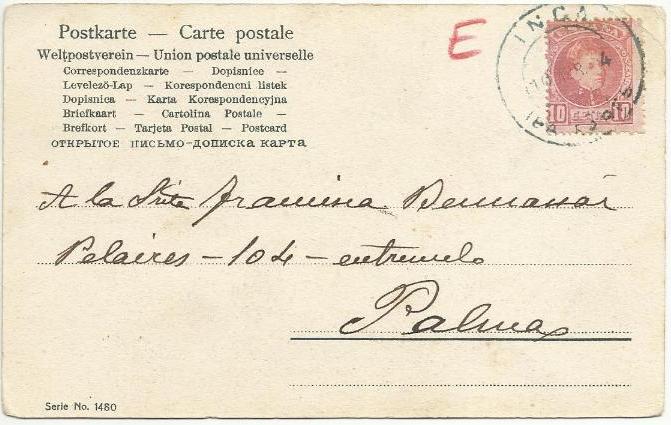 Postkarte — Carte postale
Weltpostverein — Union postale universelle
Correspondenzkarte — Dopisnice —
Levelezö-Lap — Korespondencni listek
Dopisnica — Karta Korespondencyjna
Briefkaart — Cartolina Postale —
Brefkort — Tarjeta Postal — Postcard
ОТКРЫТОЕ ПИСЬМО-ДОПИСКА КАРТА
E
INCA
10 10
A la Srita Francisca Bennassár
Pelaires - 104 - entresuelo
Palma
Serie No. 1480